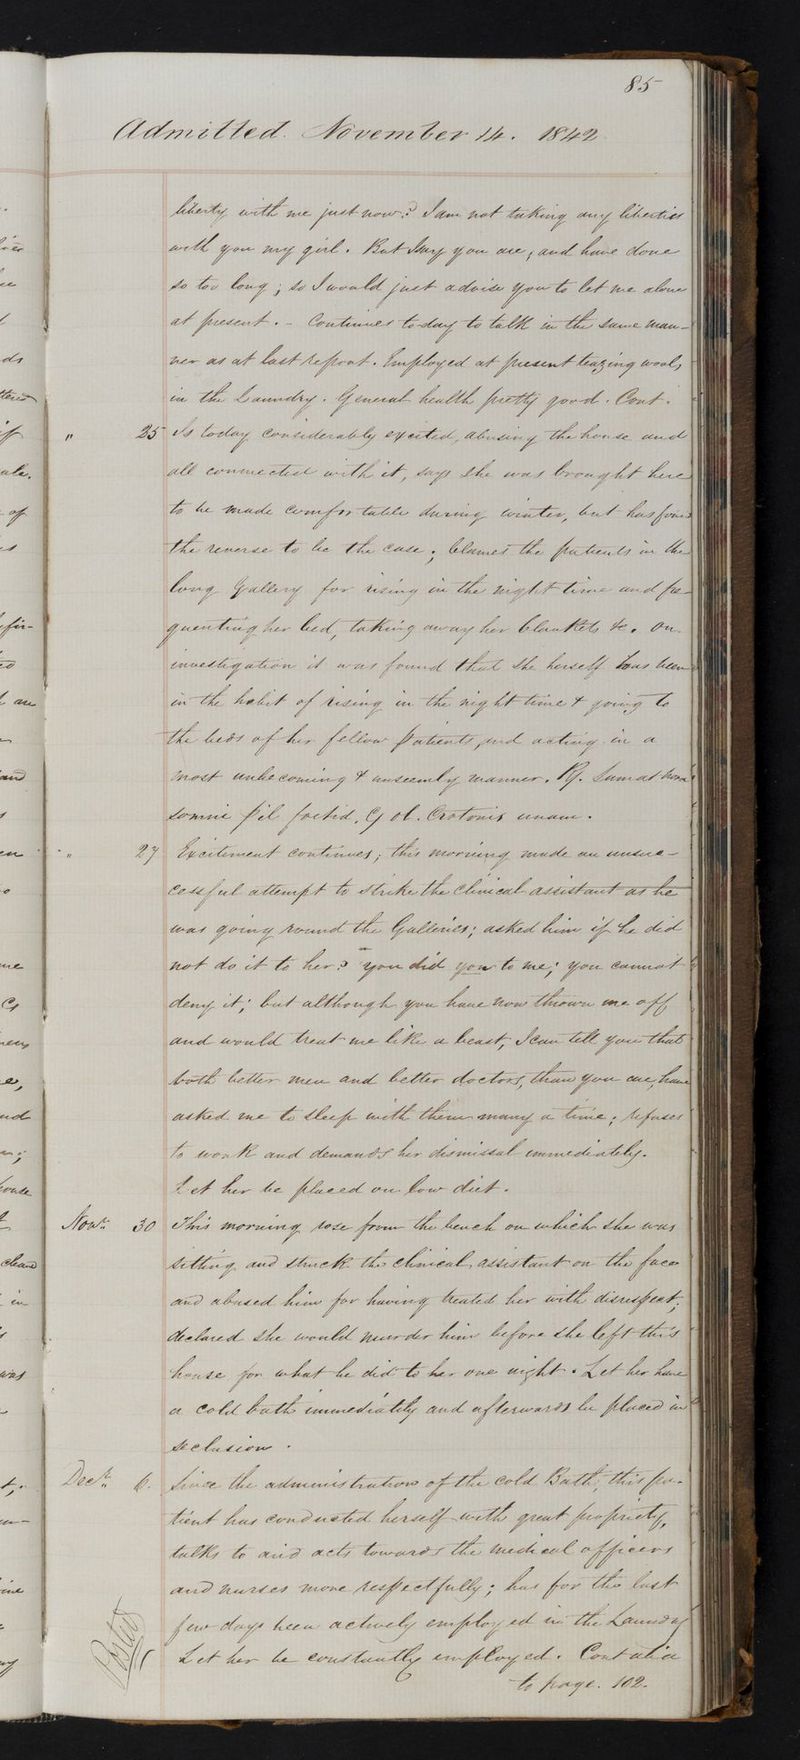 85
Admitted. November 14. 1842
liberty with me just now? I am not taking any liberties
with you my girl. But I say you are, and have done
so too long; so I would just advise you to let me alone
at present. - Continues to-day to talk in the same man-
ner as at last report. Employed at present teazing wool,
in the Laundry. General health pretty good. Cont.
" 25 Is today considerably excited, abusing the house and
all connected with it, says she was brought here
to be made comfortable during winter, but has found
the reverse to be the case; blames the patients in the
long Gallery for rising in the night time and fre-
quenting her bed, taking away her blankets &c. On
investigation it was found that she herself has been
in the habit of rising in the night time & going to
the beds of her fellow patients, and acting in a
most unbecoming & unseemly manner. Rx. Sumat hora
somni pil foetid. C ol. Crotonis unam.
" 27 Excitement continues; this morning made an unsuc-
cessful attempt to strike the Clinical assistant as he
was going round the Galleries; asked him if he did
not do it to her? "you did you to me; you cannot
deny it; but although you have now thrown me off
and would treat me like a beast, I can tell you that
both better men and better doctors, than you are, have
asked me to sleep with them many a time; refuses
to work and demands her dismissal immediately.
Let her be placed on low diet.
Novr. 30 This morning rose from the bench on which she was
sitting and struck the clinical assistant on the face
and abused him for having treated her with disrespect;
declared she would murder him before she left this
house for what he did to her one night. Let her have
a cold bath immediately and afterwards be placed in
seclusion.
Decr. 6. Since the administration of the cold Bath, this pa-
tient has conducted herself with great propriety,
talks to and acts towards the medical officers
and nurses more respectfully; has for the last
few days been actively employed in the Laundry
Let her be constantly employed. Cont alia
to page. 102.
Porteus